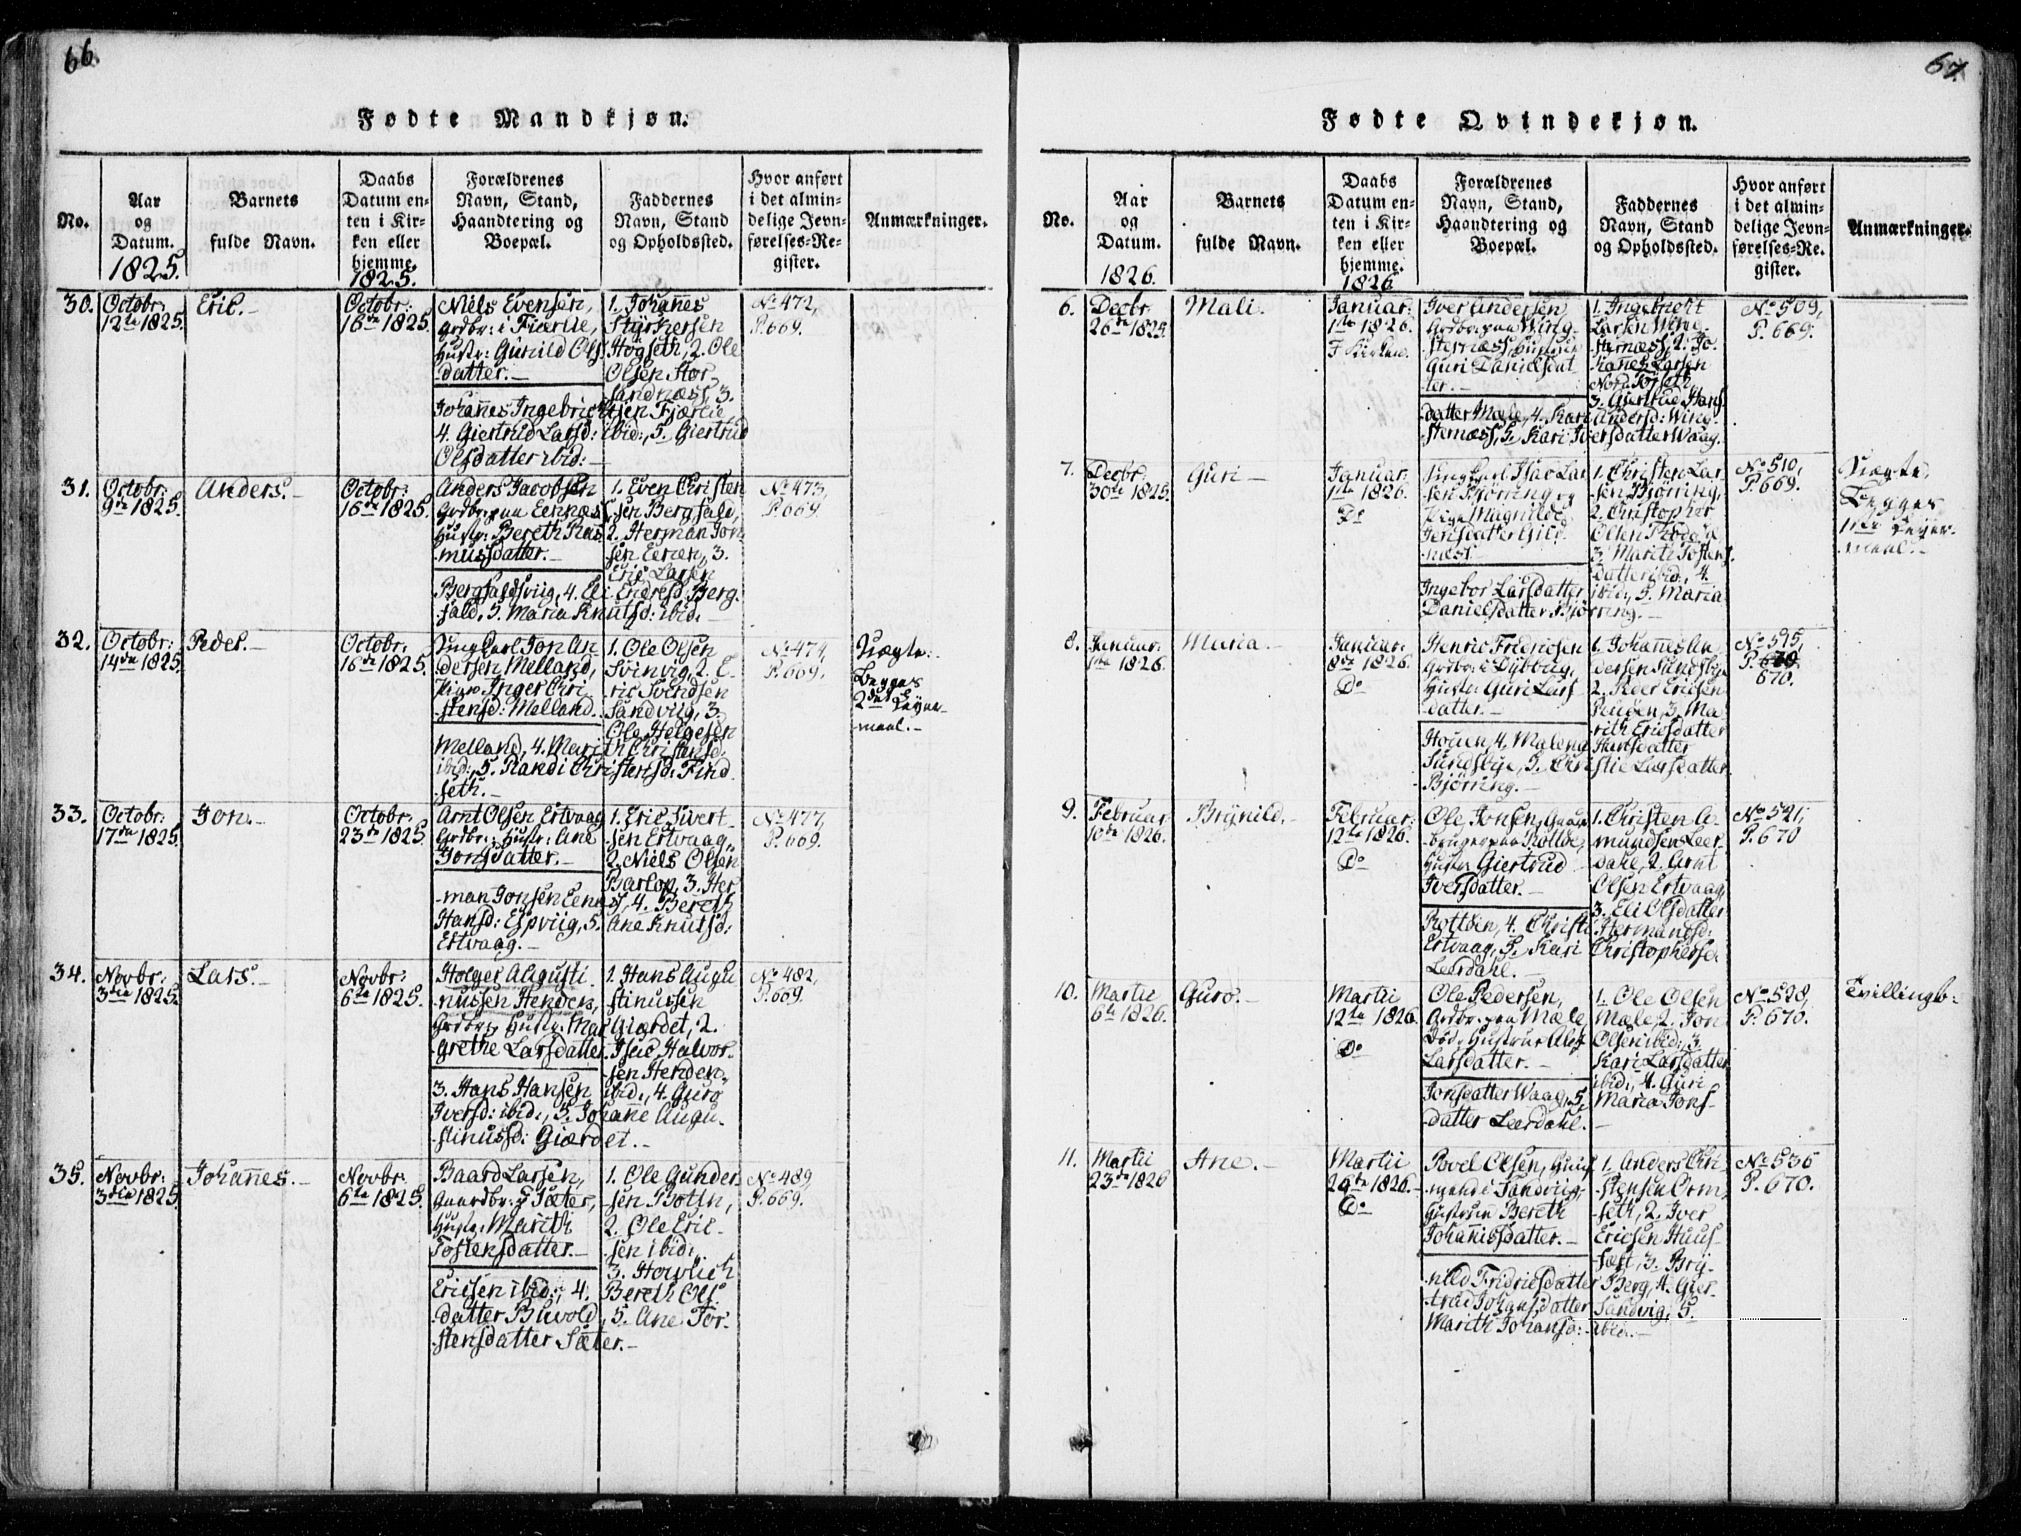 66.
Fødte Mandkjøn.
No.
Aar
og
Datum.
1825.
Barnets
fulde Navn.
Daabs
Datum en-
ten i Kir-
ken eller
hjemme.
1825.
Forældrenes
Navn, Stand,
Haandtering og
Boepæl.
Faddernes
Navn, Stand
og Opholdssted.
Hvor anført
i det almin-
delige Jevn-
førelses-Re-
gister.
Anmærkninger.
30.
Octobr:
12te 1825.
Eric.-
Octobr:
16de 1825.
Niels Evensen,
Grdbr: i Fjærlie,
Hustr: Gunild Ols
datter.-
1. Johañes
Styrkersen
Høgseth, 2. Ole
Olsen Stor-
sandnæss, 3.
Johañes Ingebrichtsen Fjærlie,
4. Giertrud Larsd: ibid:, 5. Giertrud
Olsdatter ibid:-
No 472,
P. 669.
31.
Octobr:
9de 1825.
Anders.-
Octobr:
16de 1825.
Anders Jacobsen
Grdbr: paa Eennæs
Hustr: Bereth Ras
musdatter.-
1. Even Christen
sen Bergsald,
2. Herman Jon
sen Eenæs, 3.
Eric Larsen
Bergsaldsviig, 4. Eli Endresd: Berg-
sald, 5. Maria Knutsd: ibid.
No 473,
P. 669.
32.
Octobr:
14de 1825.
Peder.-
Octobr:
16de 1825.
Ungkarl Jon An
dersen Melland,
Pige Inger Chri
stensd: Melland.
1. Ole Olsen
Svinvig, 2. E-
ric Svendsen
Sandviig, 3.
Ole Helgesen
Melland, 4. Marith Christensd:
ibid:, 5. Randi Christensd: Find
seth.-
No 474,
P. 669.
Uægte:
Begges
2det Leyer-
maal.-
33.
Octobr:
17de 1825.
Jon.-
Octobr:
23de 1825.
Arnt Olsen Ertvaag
Grdbr:, Hustr: Ane
Jonsdatter.-
1. Eric Sivert-
sen Ertvaag,
2. Niels Olsen
Barlop, 3. Her
man Jonsen Eenæs, 4. Bereth
Hansd: Espviig, 5. Ane Knutsd:
Ertvaag.-
No 477,
P. 669.
34.
Novbr:
3die 1825.
Lars.-
Novbr:
6te 1825.
Holger Augusti-
nussen Henden,
Grdbr:, Hustr: Mar
grethe Larsdatter.
1. Hans Augu
stinussen
Giærdet, 2.
Isac Halvor-
sen Henden,
3. Hans Hansen ibid:, 4. Guro
Iversd: ibid:, 5. Johañe Augu-
stinussd: Giærdet.-
No 482,
P. 669.
35.
Novbr:
3die 1825
Johañes.-
Novbr:
6te 1825.
Baard Larsen,
Gaardbr: i Sæter,
Hustr: Marith
Tostensdatter.-
1. Ole Gunder
sen Botln,
2. Ole Eric-
sen ibid:,
3. Howlich
Ericsen ibid:, 4. Bereth Ols
datter Buvold, 5. Ane Tor-
stensdatter Sæter.-
No 489,
P. 669.
67.
Fødte Qvindekjøn.
No.
Aar
og
Datum.
1826.
Barnets
fulde Navn.
Daabs
Datum en-
ten i Kir-
ken eller
hjemme.
1826
Forældrenes
Navn, Stand,
Haandtering og
Boepæl.
Faddernes
Navn, Stand
og Opholdssted.
Hvor anført
i det almin-
delige Jevn-
førelses-Re-
gister.
Anmærkninger.
6.
Decbr.
26de 1825.
Mali.-
Januar:
1te 1826.
I Kirken.
Iver Andersen
Grdbr: paa Wing-
sternæss, Hustrue
Guri Danielsdat
ter.-
1. Ingebricht
Larsen Wing-
sternæss, 2. Jo-
hañes Larsen
Nord Tøfseth,
3. Giertrue Hans
datter Mæle, 4. Kari Andersd: Wing-
sternæss, 5. Kari Iversdatter Waag.
No 509,
P. 669.
7.
Decbr.
30te 1825.
Guri-
Januar:
1te 1826.
Do
Ungkarl Isac Lar
sen Bjørring og
Pige Magnilde
Jensdatter
1. Christen Lar-
sen Bjørring,
2. Christopher
Olsen
3. Marith Tostens
datter ibid:, 4.
Ingebor Larsdatter ibid:, 5. Maria
Danielsdatter Bjørring.-
No 510,
P. 669.
Uægte,
Begges
1ste Leyer-
maal.-
8.
Januar:
1te 1826.
Maria.-
Januar:
8de 1826.
Do
Henric Fredricsen
Grdbr: i
Hustr: Guri Lars
datter.-
1. Johañes An
dersen Sundsbye
2. Peder Ericsen
3. Ma
rith Ericsdatter
Houen, 4. Malena Hansdatter
Sundsbye, 5. Christie Larsdatter
Bjørring.-
No 515,
P. 670.
670.
9.
Februar:
10de 1826.
Brÿnild.-
Februar:
12te 1826.
Do
Ole Jonsen, Gaard
bruger paa Rottde,
Hustr: Giertrud
Iversdatter.-
1. Christen A-
mundsen Leer-
dahl, 2. Arnt
Olsen Ertvaag,
3. Eli Olsdatter
Rottden, 4. Christi Hermandsd:
Ertvaag, 5. Kari Christophersd:
Leerdahl.-
No 521,
P. 670
10.
Martii
6te 1826.
Guro.-
Martii
12te 1826.
Do
Ole Pedersen,
Grdbr: paa Mæle
Hustrue
Larsdatter.-
1. Ole Olsen
Mæle, 2. Jon
Olsen ibid:, 3.
Kari Larsdatter
ibid:, 4. Guri
Jonsdatter Waag, 5. Maria Jons-
datter Leerdahl.-
No 528,
P. 670.
Tvillingb:
11.
Martii
23de 1826
Ane.-
Martii
26de 1826.-
Do
Povel Olsen, Huus
mand i Sandviig,
Hustrue Bereth
Johañisdatter.-
1. Anders Chri-
stensen Orm
seth, 2. Iver
Ericsen Huus-
sæt, 3. Brÿ-
nild Fridricsdatter Berg, 4. Gier-
trud Johansdatter Sandvig, 5.
Marith Johansd: ibid.-
No 536
P. 670.